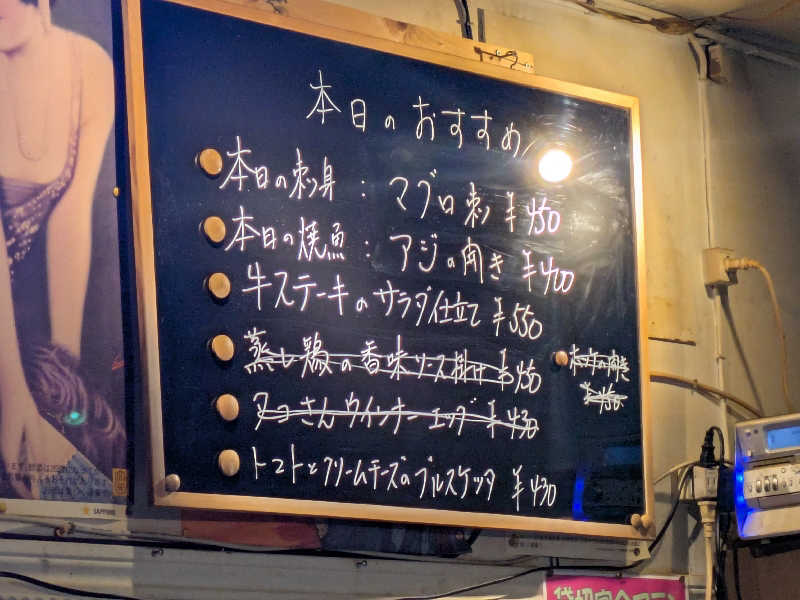 本日のおすすめ
本日の刺身 : マグロ刺 ¥450
本日の焼魚 : アジの開き ¥400
牛ステーキのサラダ仕立て ¥550
蒸し鶏の香味ソース掛け ¥450
タコさんウインナーエッグ ¥430
トマトとクリームチーズのブルスケッタ ¥430
の開き
¥450
SAPPORO